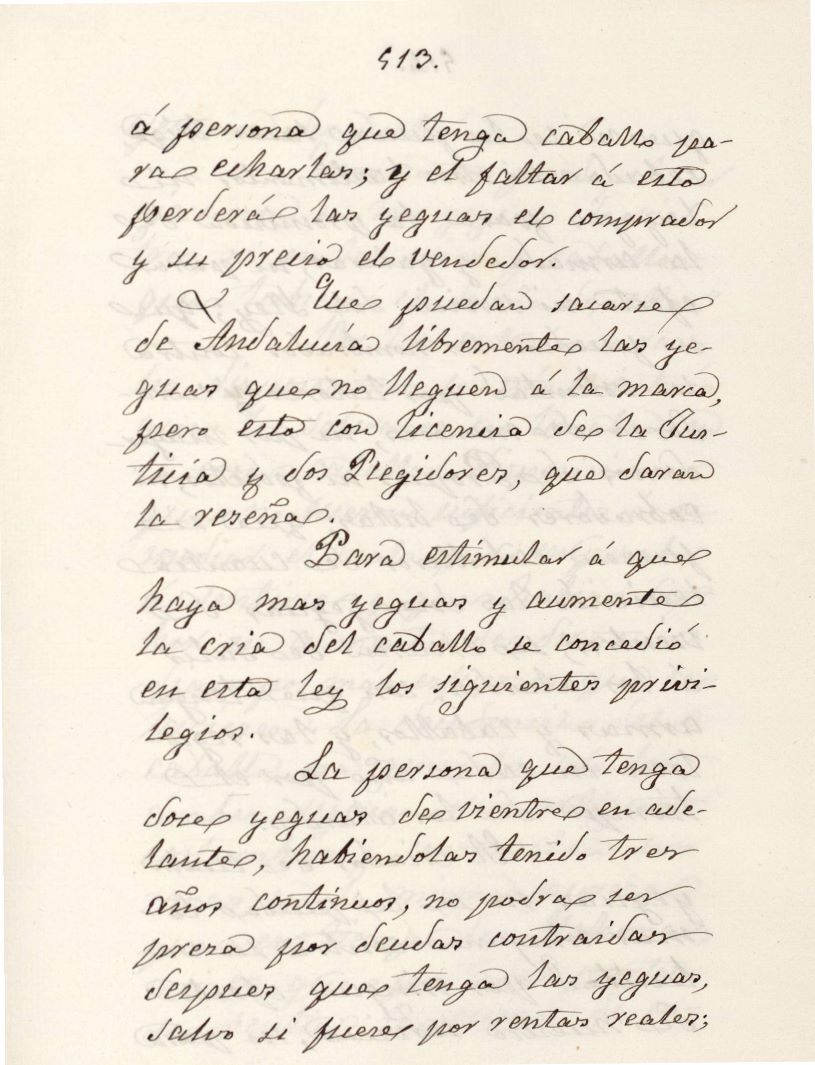 513.
á persona que tenga caballo pa-
ra echarlas; y el faltar á esto
perderá las yeguas el comprador
y su precio el vendedor.
Que puedan sacarse
de Andalucía libremente las ye-
guas que no lleguen á la marca,
pero esto con licencia de la Jus-
ticia y dos Regidores, que daran
la reseña.
Para estimular á que
haya mas yeguas y aumente
la cria del caballo se concedió
en esta ley los siguientes privi-
legios.
La persona que tenga
doce yeguas de vientre en ade-
lante, habiendolas tenido tres
años contínuos, no podra ser
presa por deudas contraidas
despues que tenga las yeguas,
salvo si fuere por rentas reales;